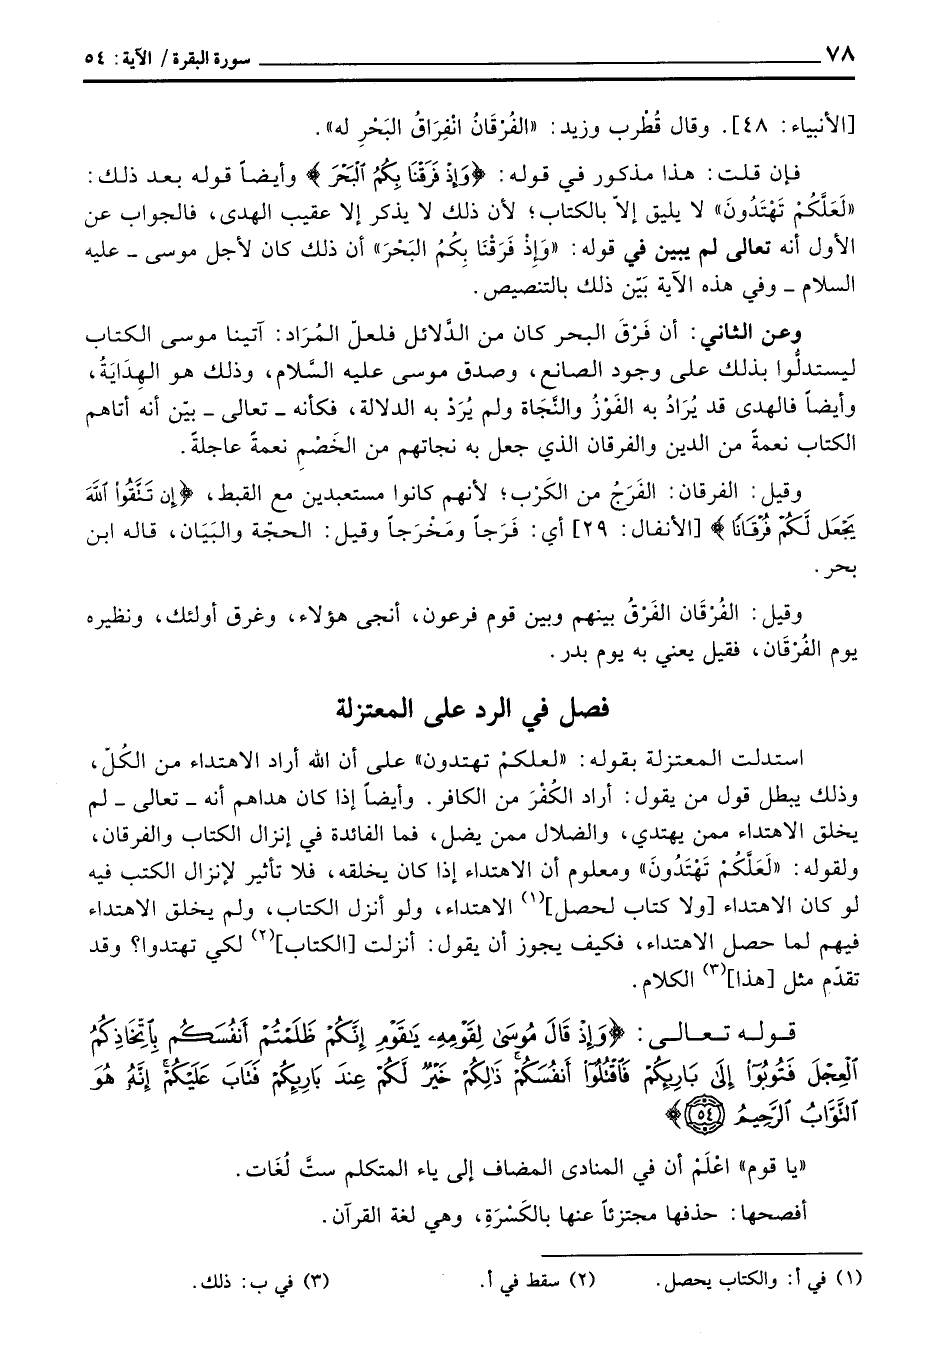 ٧٨ سورة البقرة / الآية: ٥٤
[الأنبياء: ٤٨]. وقال قُطْرب وزيد: «الفُرْقَانُ انْفِرَاقُ البَحْرِ له».
فإن قلت: هذا مذكور في قوله: ﴿وَإِذْ فَرَقْنَا بِكُمُ ٱلْبَحْرَ﴾ وأيضاً قوله بعد ذلك:
«لَعَلَّكُمْ تَهْتَدُونَ» لا يليق إلاّ بالكتاب؛ لأن ذلك لا يذكر إلا عقيب الهدى، فالجواب عن
الأول أنه تعالى لم يبين في قوله: «وَإِذْ فَرَقْنَا بِكُمُ البَحْرَ» أن ذلك كان لأجل موسى ـ عليه
السلام ـ وفي هذه الآية بَيّن ذلك بالتنصيص.
وعن الثاني: أن فَرْقَ البحر كان من الدَّلائل فلعلّ المُرَاد: آتينا موسى الكتاب
ليستدلُّوا بذلك على وجود الصانع، وصدق موسى عليه السَّلام، وذلك هو الهِدَايَةُ،
وأيضاً فالهدى قد يُرَادُ به الفَوْزُ والنَّجَاة ولم يُرَدْ به الدلالة، فكأنه ـ تعالى ـ بيّن أنه أتاهم
الكتاب نعمةً من الدين والفرقان الذي جعل به نجاتهم من الخَصْمِ نعمةً عاجلةً.
وقيل: الفرقان: الفَرَجُ من الكَرْب؛ لأنهم كانوا مستعبدين مع القبط، ﴿إِن تَتَّقُوا۟ ٱللَّهَ
يَجْعَل لَّكُمْ فُرْقَانًا﴾ [الأنفال: ٢٩] أي: فَرَجاً ومَخْرَجاً وقيل: الحجّة والبَيَان، قاله ابن
بحر.
وقيل: الفُرْقَان الفَرْقُ بينهم وبين قوم فرعون، أنجى هؤلاء، وغرق أولئك، ونظيره
يوم الفُرْقَان، فقيل يعني به يوم بدر.
فصل في الرد على المعتزلة
استدلت المعتزلة بقوله: «لعلكمْ تهتدون» على أن الله أراد الاهتداء من الكُلّ،
وذلك يبطل قول من يقول: أراد الكُفْرَ من الكافر. وأيضاً إذا كان هداهم أنه ـ تعالى ـ لم
يخلق الاهتداء ممن يهتدي، والضلال ممن يضل، فما الفائدة في إنزال الكتاب والفرقان،
ولقوله: «لَعَلَّكُمْ تَهْتَدُونَ» ومعلوم أن الاهتداء إذا كان يخلقه، فلا تأثير لإنزال الكتب فيه
لو كان الاهتداء [ولا كتاب لحصل](١) الاهتداء، ولو أنزل الكتاب، ولم يخلق الاهتداء
فيهم لما حصل الاهتداء، فكيف يجوز أن يقول: أنزلت [الكتاب](٢) لكي تهتدوا؟ وقد
تقدّم مثل [هذا](٣) الكلام.
قوله تعالى: ﴿وَإِذْ قَالَ مُوسَىٰ لِقَوْمِهِۦ يَٰقَوْمِ إِنَّكُمْ ظَلَمْتُمْ أَنفُسَكُم بِٱتِّخَاذِكُمُ
ٱلْعِجْلَ فَتُوبُوٓا۟ إِلَىٰ بَارِئِكُمْ فَٱقْتُلُوٓا۟ أَنفُسَكُمْ ذَٰلِكُمْ خَيْرٌ لَّكُمْ عِندَ بَارِئِكُمْ فَتَابَ عَلَيْكُمْ إِنَّهُۥ هُوَ
ٱلتَّوَّابُ ٱلرَّحِيمُ ٥٤﴾
«يا قوم» اعْلَمْ أن في المنادى المضاف إلى ياء المتكلم ستَّ لُغَات.
أفصحها: حذفها مجتزئاً عنها بالكَسْرَةِ، وهي لغة القرآن.
(١) في أ: والكتاب يحصل. (٢) سقط في أ. (٣) في ب: ذلك.